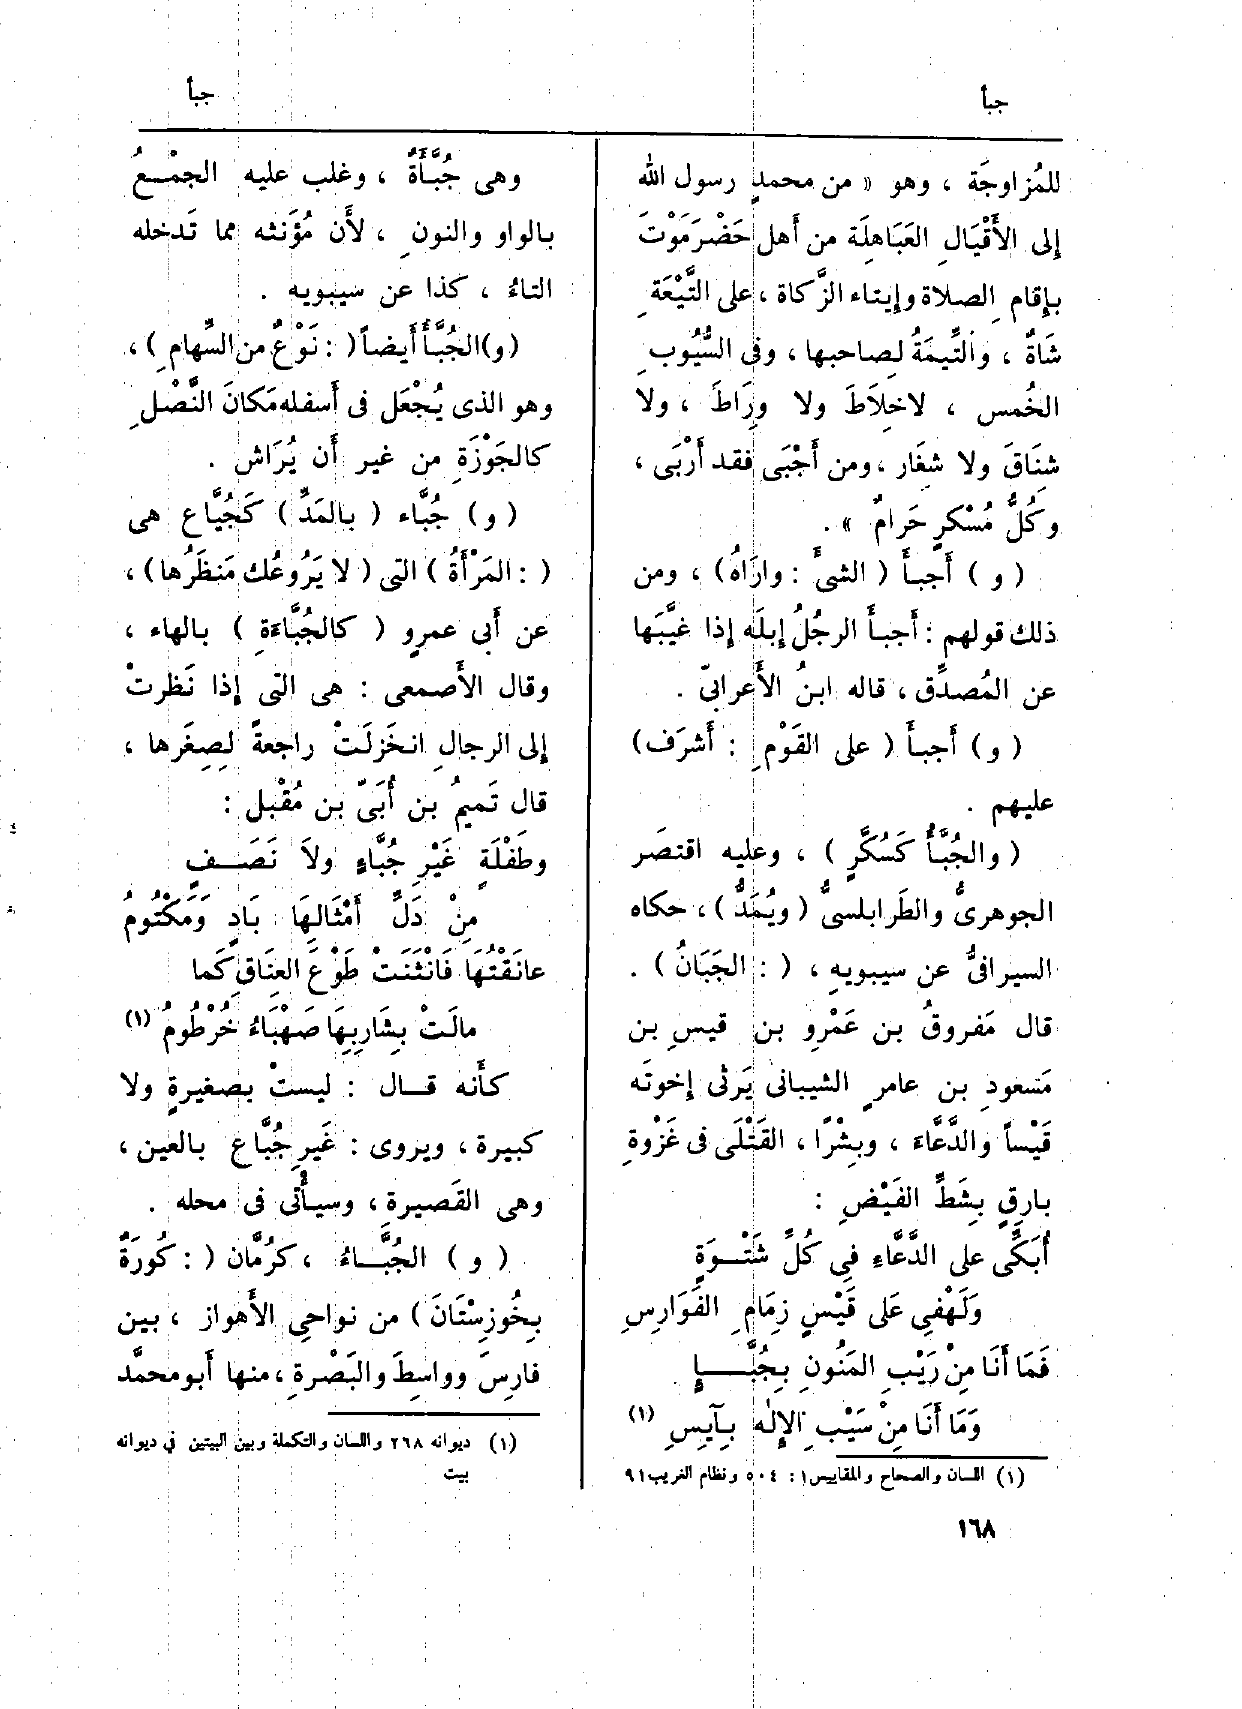 جبأ
جبأ
للمُزاوجَة ، وهو « من محمدٍ رسول الله
إلى الأَقْيَالِ العَبَاهِلَة من أَهل حَضْرَمَوْتَ
بإِقامِ الصلاة وإيتاء الزَّكاة ، على التِّيْعَةِ
شاةٌ ، والتِّيمَةُ لصاحبها ، وفى السُّيُوبِ
الخُمس ، لاخِلَاطَ ولا وِرَاطَ ، ولا
شِنَاقَ ولا شغَار ، ومن أَجْبَى فقد أَرْبَى ،
وكُلُّ مُسْكرٍ حَرامٌ » .
( و ) أَجبأَ ( الشىءَ : وارَاهُ ) ، ومن
ذلك قولهم : أَجبأَ الرجُلُ إبلَه إذا غيَّبَها
عن المُصدِّق ، قاله ابنُ الأَعرابىّ .
( و ) أَجبأَ ( على القَوْمِ : أَشرَف )
عليهم .
( والجُبَّأُ كَسُكَّرٍ ) ، وعليه اقتصَر
الجوهرىُّ والطَرابلسىُّ ( ويُمَدُّ ) ، حكاه
السيرافىُّ عن سيبويهِ ، ( : الجَبَانُ ) .
قال مَفروقُ بن عَمْرِو بن قيسِ بن
مَسعودِ بن عامرٍ الشيبانى يَرثى إخوتَه
قَيْساً والدَّعَّاءَ ، وبِشْرًا ، القَتْلَى فى غَزْوةِ
بارِقٍ بِشَطِّ الفَيْضِ :
أُبَكِّى على الدَّعَّاءِ فِى كُلِّ شَتْــوَةٍ
وَلَهْفِى عَلى قَيْسٍ زِمَامِ الفَوَارِسِ
فَمَا أَنَا مِنْ رَيْبِ المَنُونِ بِجُبَّــــإٍ
وَمَا أَنَا مِنْ سَيْبِ الإِلٰه بِآيِسِ (١)
(١) اللسان والصحاح والمقاييس ١ : ٥٠٤ ونظام الغريب ٩١
وهى جُبَّأَةٌ ، وغلب عليه الجمْــعُ
بالواو والنونِ ، لأَن مُؤَنثه مما تَدخله
التاءُ ، كذا عن سيبويه .
(و) الجُبَّأُ أَيضاً ( : نَوْعٌ من السِّهامِ ) ،
وهو الذى يُجْعَل فى أَسفله مَكانَ النَّصْلِ
كالجَوْزَةِ من غير أَن يُرَاش .
( و ) جُبَّاء ( بالمَدِّ ) كَجُبَّاع هى
( : المَرْأَةُ ) التى ( لا يَرُوعُك مَنظَرُها ) ،
عن أَبى عمرٍو ( كالجُبَّاءَةِ ) بالهاء ،
وقال الأَصمعى : هى التى إذا نَظرتْ
إلى الرجالِ انخَزلَتْ راجعةً لصِغَرها ،
قال تَميمُ بن أُبَىِّ بن مُقْبل :
وطَفْلَةٍ غَيْرِ جُبَّاءٍ ولاَ نَصَــفٍ
مِنْ دَلِّ أَمْثَالِهَا بَادٍ وَمَكْتُومُ
عانَقْتُهَا فَانْثَنَتْ طَوْعَ العِنَاقِ كَما
مالَتْ بِشَارِبِهَا صَهْبَاءُ خُرْطُومُ (١)
كأَنه قــال : ليستْ بصغيرةٍ ولا
كبيرة ، ويروى : غَيرِ جُبَّاعٍ بالعين ،
وهى القَصيرة ، وسيأْتى فى محله .
( و ) الجُبَّــاءُ ، كرُمَّان ( : كُورَةٌ
بِخُوزِسْتَانَ ) من نواحى الأَهواز ، بين
فارِسَ وواسِطَ والبَصْرةِ ، منها أَبو محمَّد
(١) ديوانه ٢٦٨ واللسان والتكملة وبين البيتين في ديوانه
بيت
١٦٨